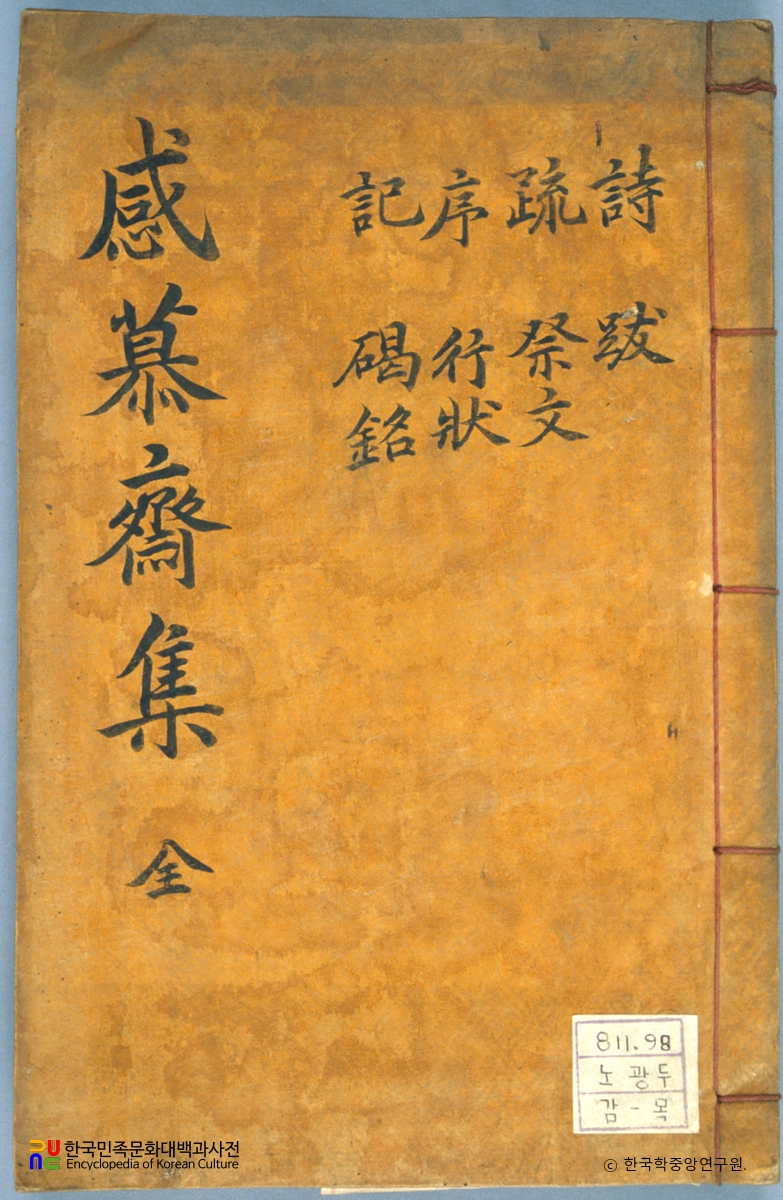 詩 跋
疏 祭文
序 行狀
記 碣銘
感慕齋集 全
811.98
노광두
감-목
한국민족문화대백과사전
Encyclopedia of Korean Culture
ⓒ 한국학중앙연구원.